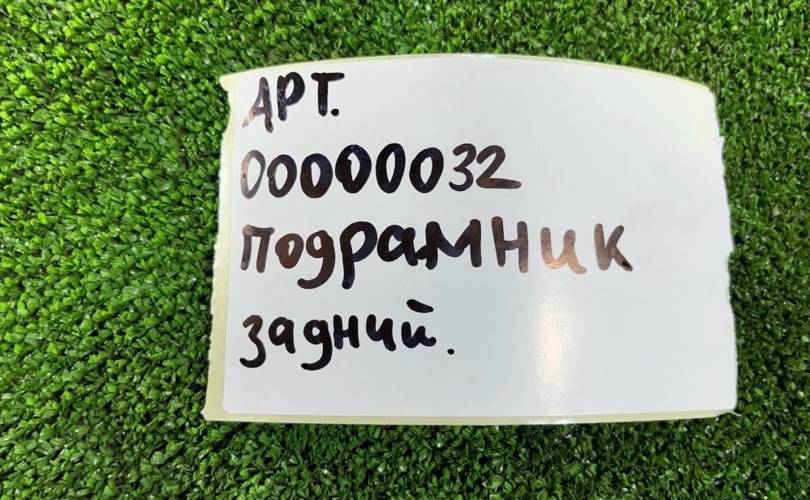 АРТ.
00000032
подрамник
задний.